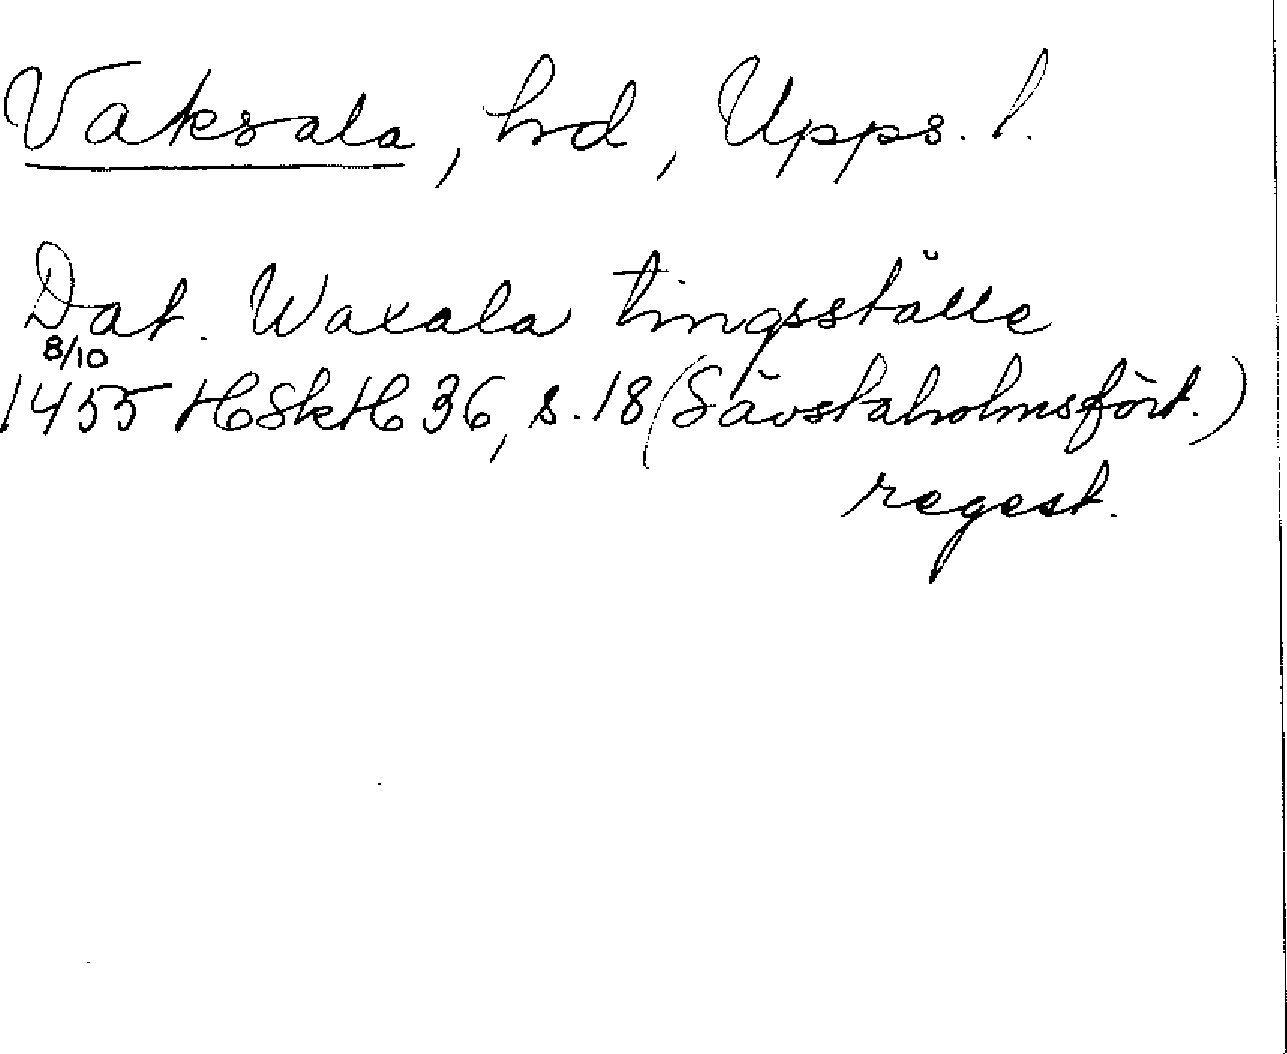 Vaksala, hd, Upps. l.
Dat. Waxala tingsställe
8/10
1455 HSkH 36, s. 18 (Sävstaholmsfört.)
regest.